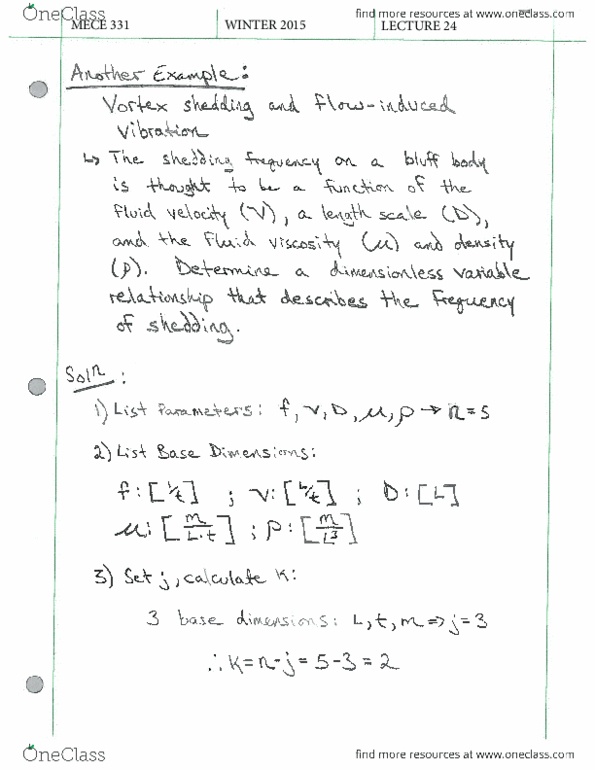 OneClass find more resources at www.oneclass.com
MECE 331 WINTER 2015 LECTURE 24
Another Example:
Vortex shedding and flow-induced
vibration
↳ The shedding frequency on a bluff body
is thought to be a function of the
fluid velocity (V), a length scale (D),
and the fluid viscosity (μ) and density
(ρ). Determine a dimensionless variable
relationship that describes the frequency
of shedding.
Solⁿ:
1) List Parameters: f, V, D, μ, ρ → n=5
2) List Base Dimensions:
f: [1/t] ; V: [L/t] ; D: [L]
μ: [m/L·t] ; ρ: [m/L³]
3) Set j, calculate k:
3 base dimensions: L, t, m ⇒ j=3
∴ k = n-j = 5-3 = 2
OneClass find more resources at www.oneclass.com